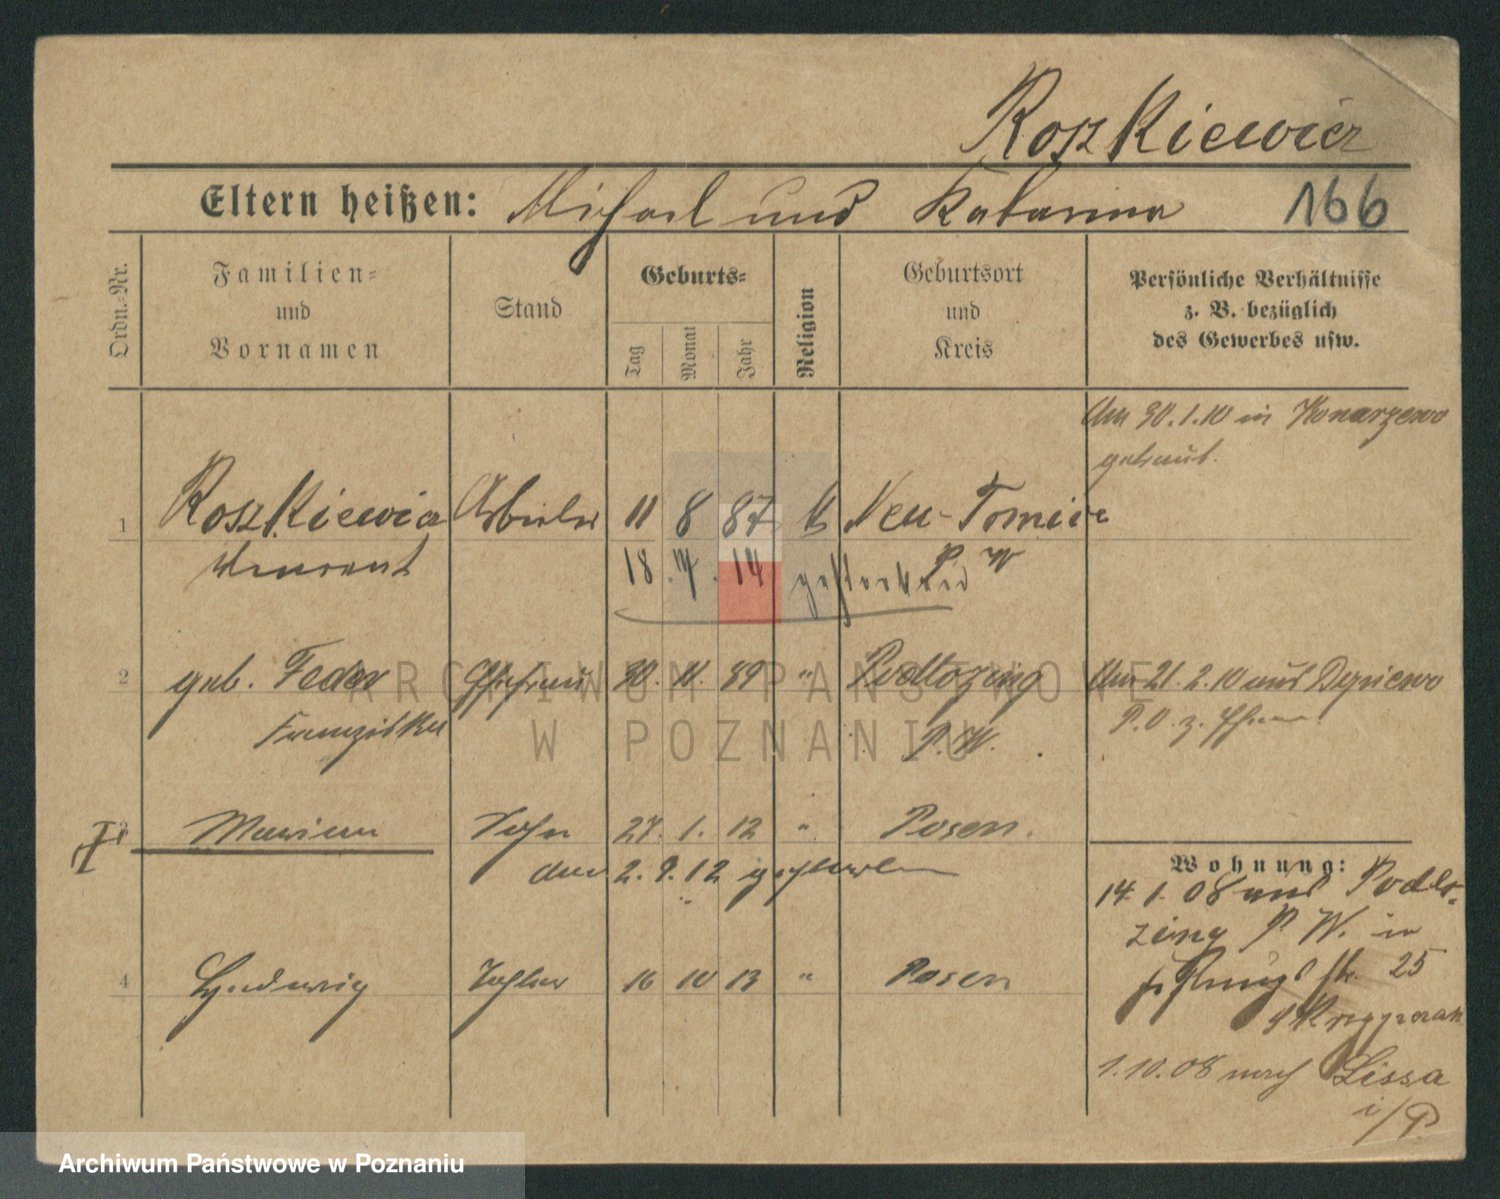 Roszkiewicz
Eltern heißen: Michael und Katarina 166
Ordn.=Nr.
Familien=
und
Vornamen
Stand
Geburts=
Tag
Monat
Jahr
Religion
Geburtsort
und
Kreis
Persönliche Verhältnisse
z. B. bezüglich
des Gewerbes usw.
Am 30.1.10 in Konarzewo
getraut.
1 Roszkiewicz Arbeiter 11 8 87 k Neu-Tomice
Vincent P. W
18.7.14 gestorben
2 geb. Feder Ehefrau 30. 11. 89 " Podlozing Am 21.2.10 aus
Franziska P. W. P. O. z.
3 Marian Sohn 27. 1. 12 " Posen.
am 2.9.12 gestorben
Wohnung:
14.1.08 aus Podlo-
zing P. W. in
str. 25
4 Hedwig Tochter 16 10 13 " Posen
1.10.08 nach Lissa
i/P.
ARCHIWUM PAŃSTWOWE
W POZNANIU
Archiwum Państwowe w Poznaniu